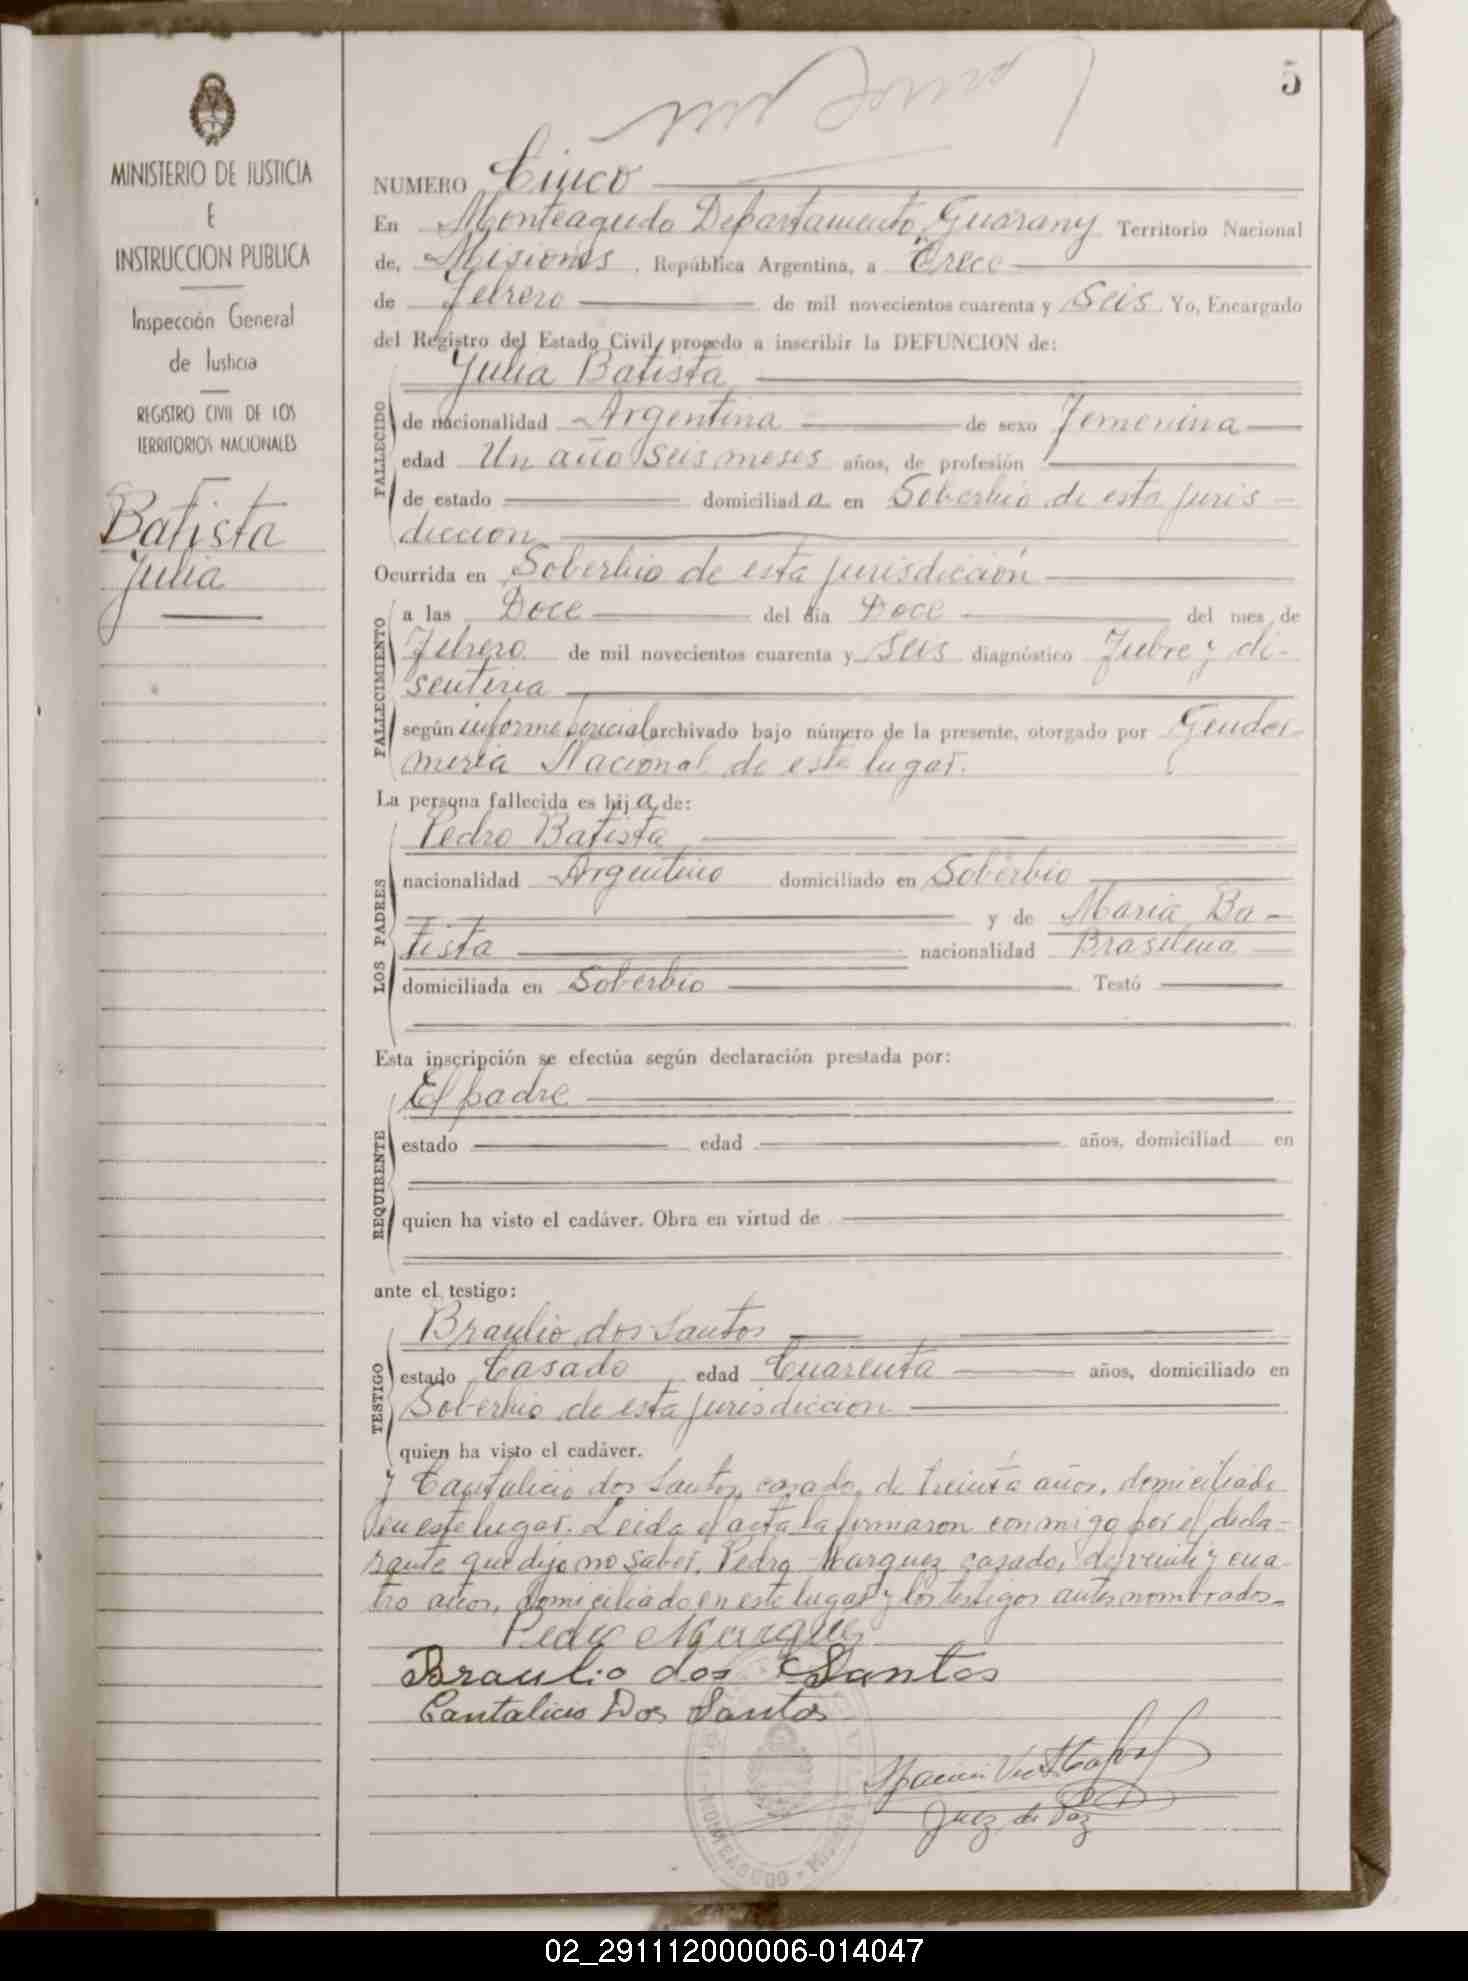 5
MINISTERIO DE JUSTICIA
E
INSTRUCCION PUBLICA
Inspección General
de Justicia
REGISTRO CIVIL DE LOS
TERRITORIOS NACIONALES
Batista
Julia
NUMERO Cinco
En Monteagudo Departamento Guarany Territorio Nacional
de, Misiones, República Argentina, a Trece
de Febrero de mil novecientos cuarenta y Seis. Yo, Encargado
del Registro del Estado Civil, procedo a inscribir la DEFUNCION de:
Julia Batista
FALLECIDO
de nacionalidad Argentina de sexo Femenina
edad Un año Seis meses años, de profesión
de estado domiciliada en Soberbio de esta juris-
diccion
Ocurrida en Soberbio de esta jurisdicción
FALLECIMIENTO
a las Doce del día Doce del mes de
Febrero de mil novecientos cuarenta y Seis diagnóstico Fiebre y di-
senteria
según informe policial archivado bajo número de la presente, otorgado por Gendar-
meria Nacional de este lugar.
La persona fallecida es hija de:
LOS PADRES
Pedro Batista
nacionalidad Argentino domiciliado en Soberbio
y de Maria Ba-
tista nacionalidad Brasilena
domiciliada en Soberbio Testó
Esta inscripción se efectúa según declaración prestada por:
REQUIRENTE
El padre
estado edad años, domiciliad en
quien ha visto el cadáver. Obra en virtud de
ante el testigo:
TESTIGO
Braulio dos Santos
estado Casado edad Cuarenta años, domiciliado en
Soberbio de esta jurisdiccion
quien ha visto el cadáver.
y Cantalicio dos Santos, casado, de treinta años, domiciliado
en este lugar. Leida el acta la firmaron conmigo por el decla-
rante que dijo no saber, Pedro Marquez casado, de veinte y cua-
tro años, domiciliado en este lugar y los testigos antes nombrados.
Pedro Marques
Braulio dos Santos
Cantalicio Dos Santos
Juez de Paz
02_291112000006-014047